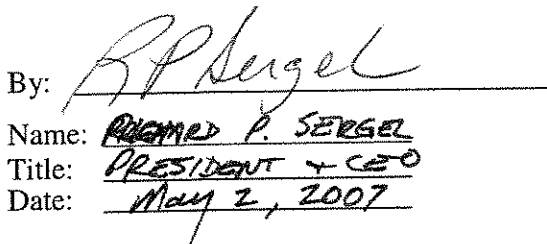 By: RP Sergel
Name: RICHARD P. SERGEL
Title: PRESIDENT + CEO
Date: May 2, 2007